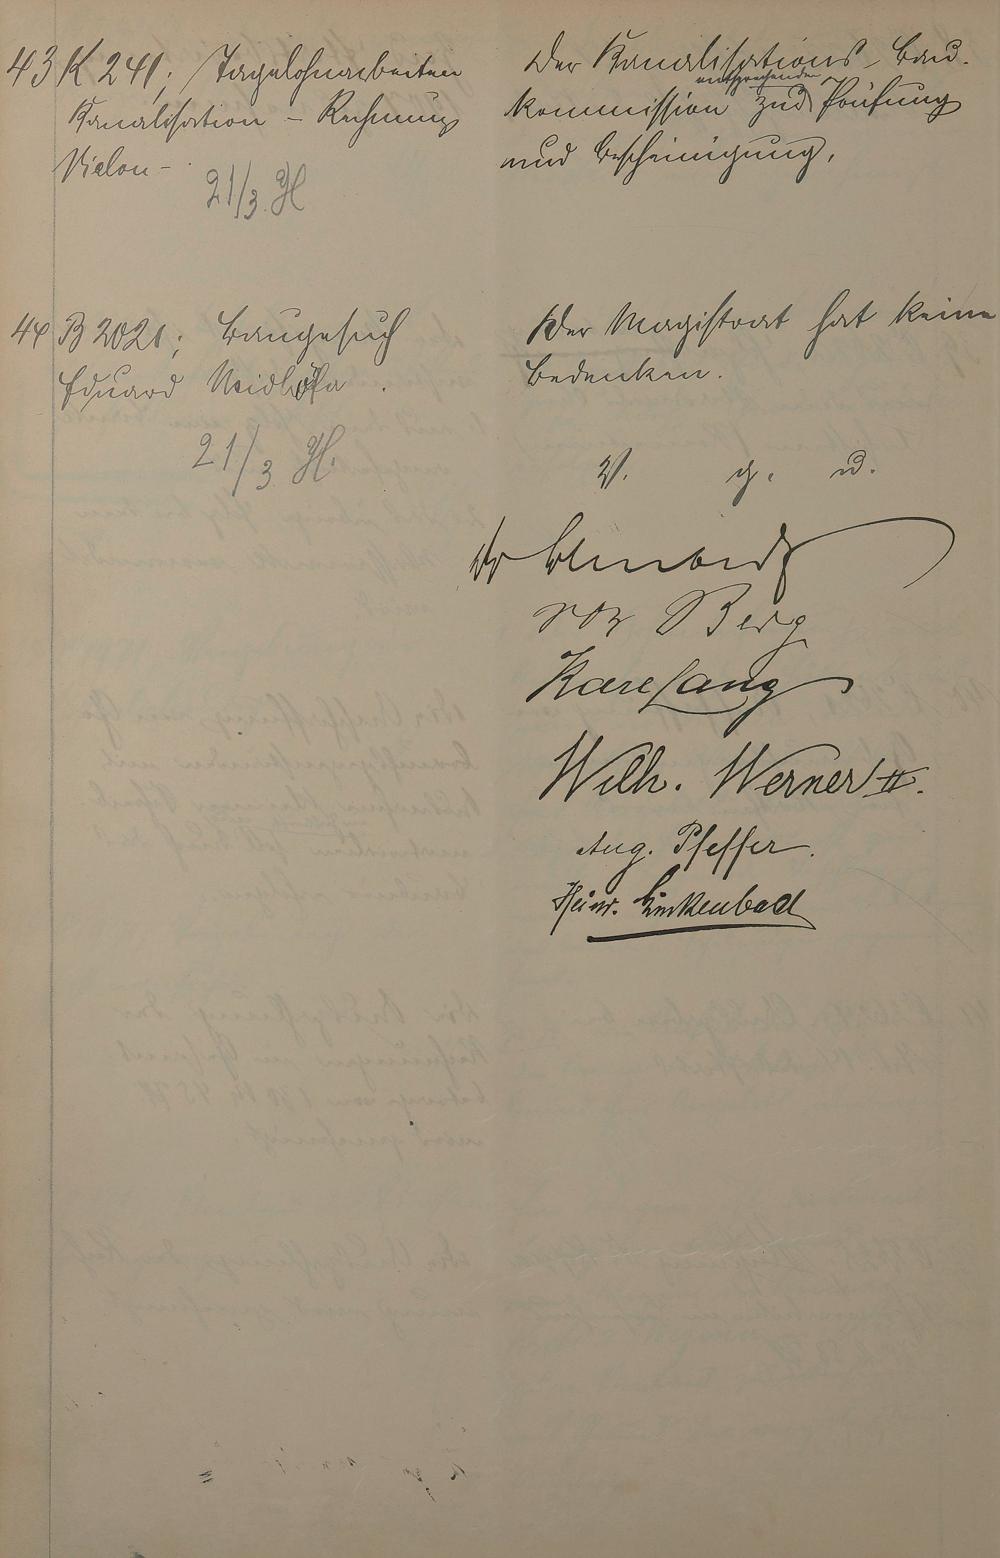 43 K 241; Tagelohnarbeiten
Kanalisation - Rechnung
Vielon -
21/3. H
Der Kanalisations-Bau-
kommission zur entsprechenden Prüfung
und Bescheinigung.
44 B 2021; Baugesuch
Eduard Neidhöfer.
21/3. H.
Der Magistrat hat keine
Bedenken.
V. g. u.
Dr
von Berg
Karl Lang
Wilh. Werner II.
Aug. Pfeffer.
Heinr. Linkenbach